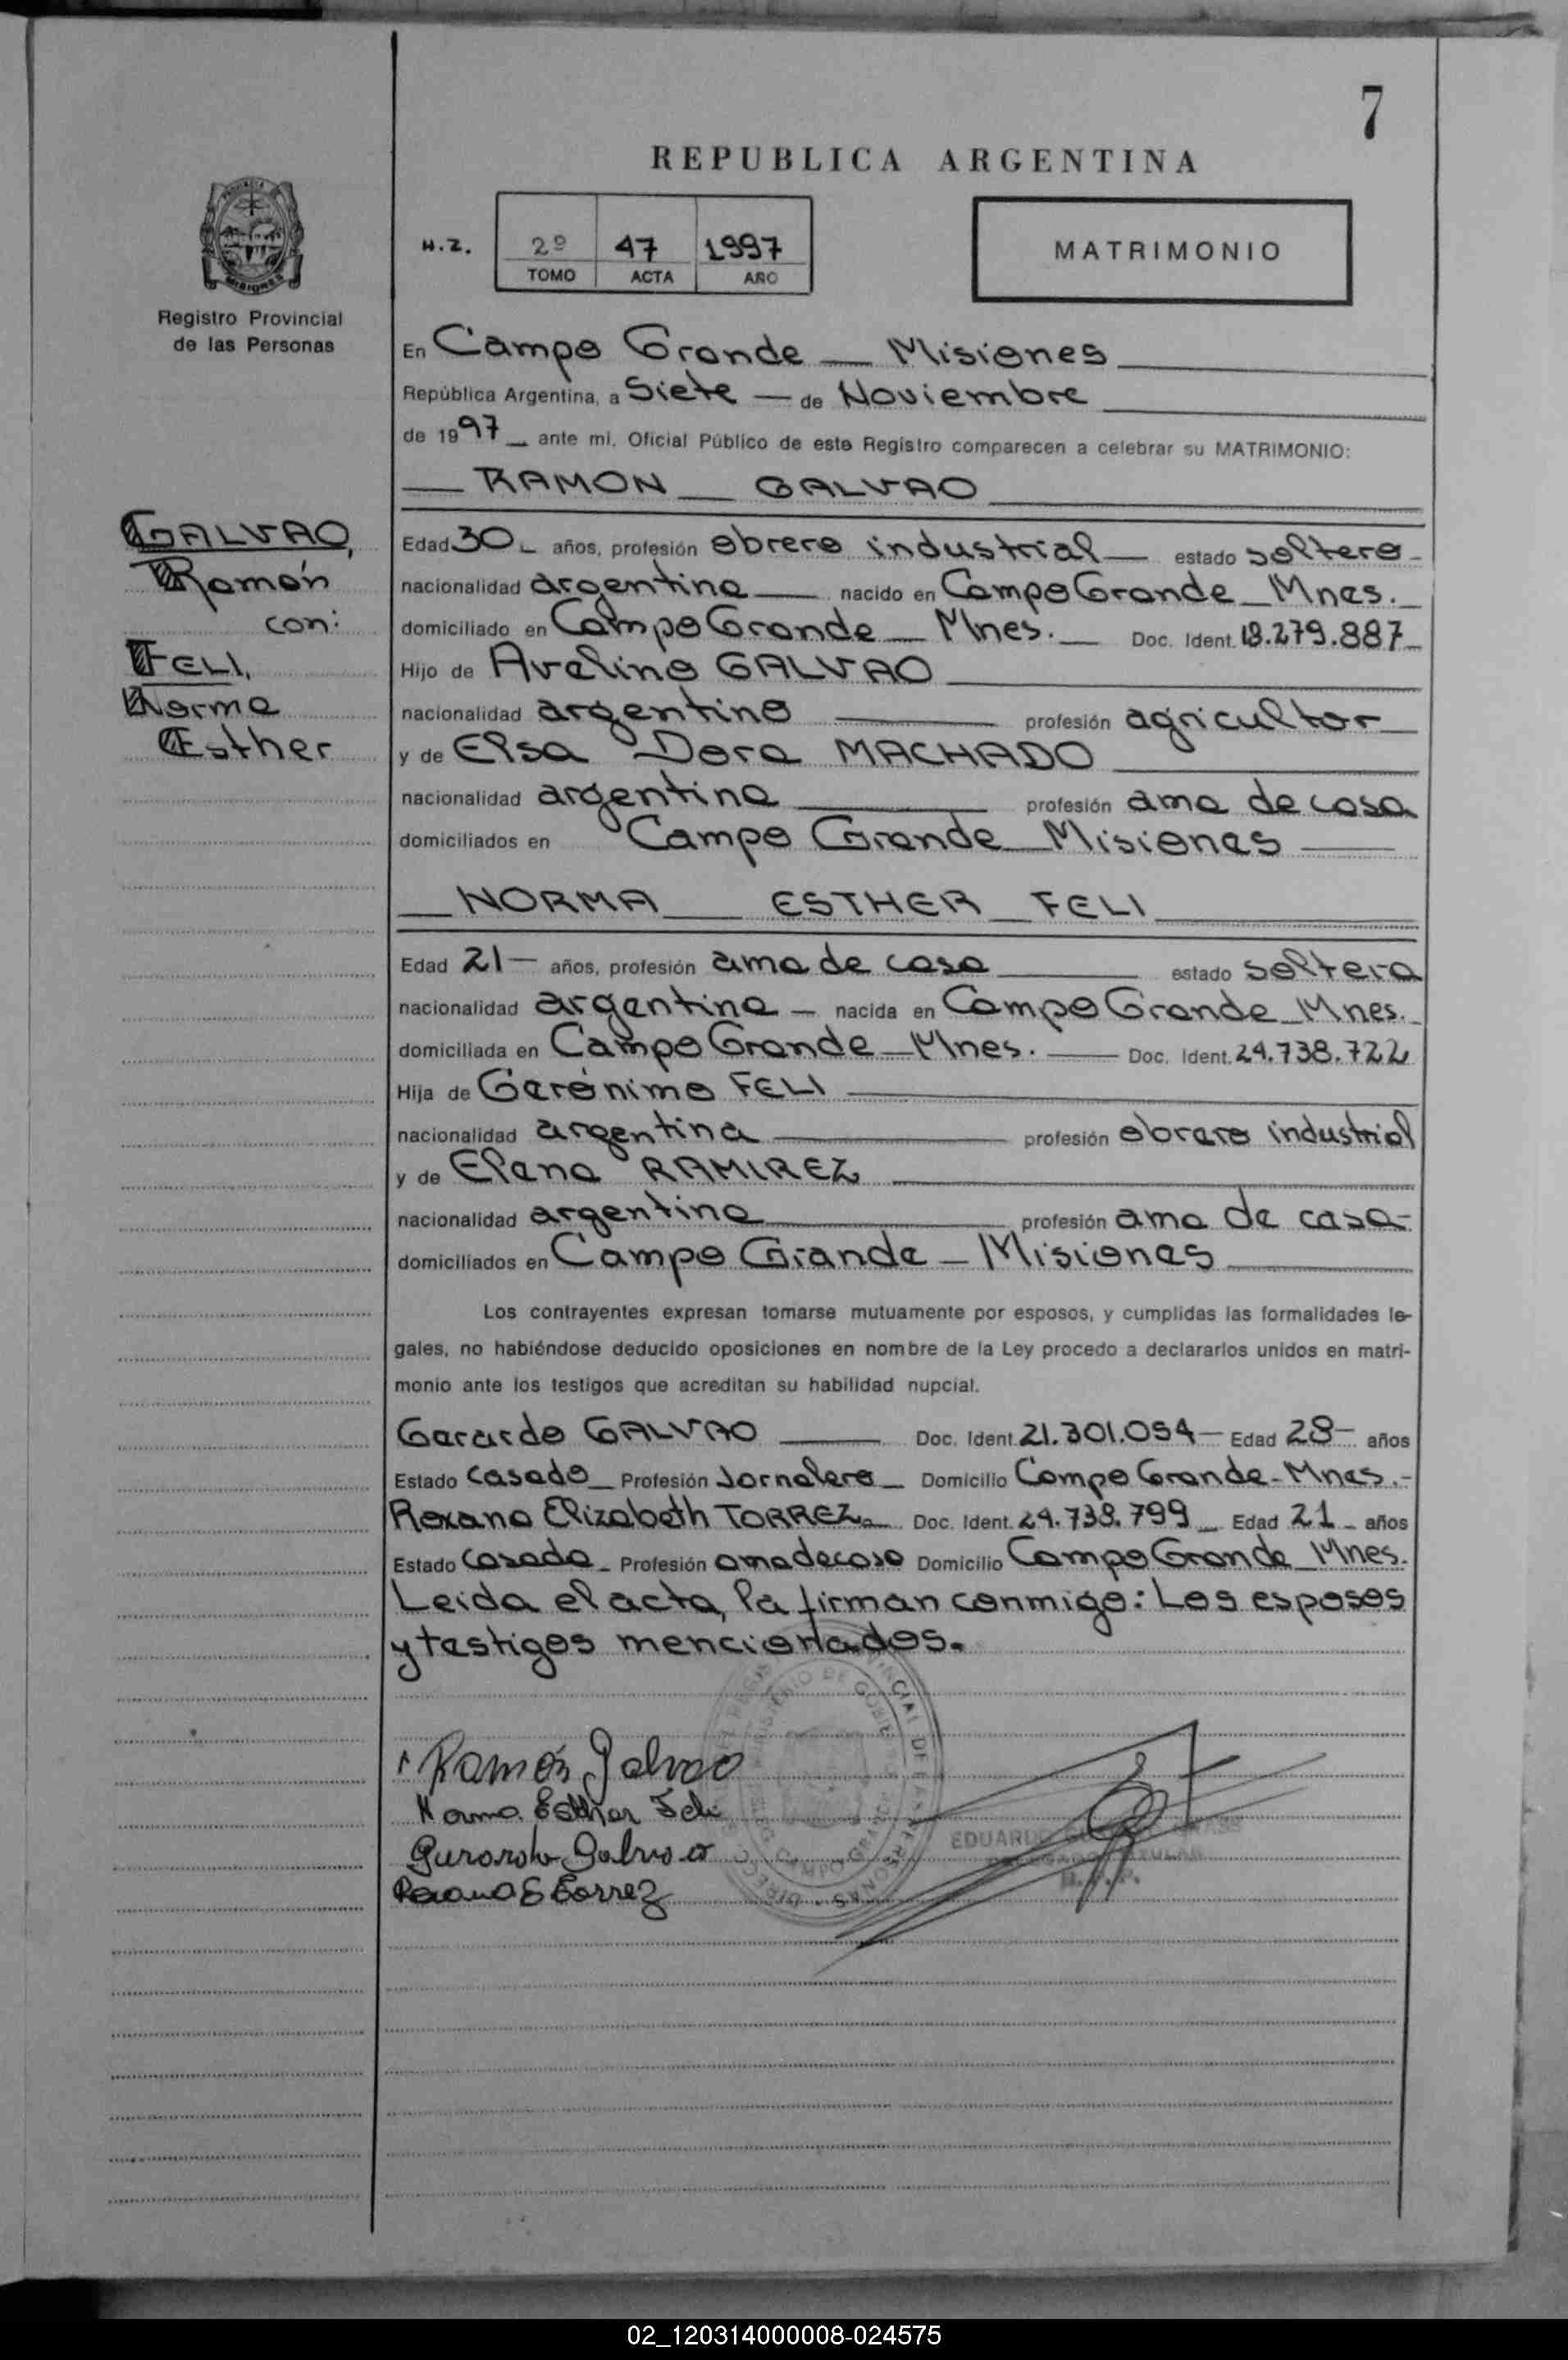 7
REPUBLICA ARGENTINA
H.Z. 2º 47 1997
TOMO ACTA AÑO
MATRIMONIO
Registro Provincial
de las Personas
GALVAO,
Ramón
con:
FELI,
Norma
Esther
En Campo Grande — Misiones
República Argentina, a Siete — de Noviembre
de 1997 — ante mi, Oficial Público de este Registro comparecen a celebrar su MATRIMONIO:
— RAMON — GALVAO
Edad 30 — años, profesión obrero industrial — estado soltero —
nacionalidad argentina — nacido en Campo Grande — Mnes. —
domiciliado en Campo Grande — Mnes. — Doc. Ident. 18.279.887 —
Hijo de Avelino GALVAO
nacionalidad argentino — profesión agricultor —
y de Elsa Dora MACHADO
nacionalidad argentina — profesión ama de casa
domiciliados en Campo Grande — Misiones —
— NORMA — ESTHER — FELI
Edad 21 — años, profesión ama de casa — estado soltera
nacionalidad argentina — nacida en Campo Grande — Mnes. —
domiciliada en Campo Grande — Mnes. — Doc. Ident. 24.738.722
Hija de Gerónimo FELI
nacionalidad argentina — profesión obrero industrial
y de Elena RAMIREZ
nacionalidad argentina — profesión ama de casa -
domiciliados en Campo Grande — Misiones
Los contrayentes expresan tomarse mutuamente por esposos, y cumplidas las formalidades le-
gales, no habiéndose deducido oposiciones en nombre de la Ley procedo a declararlos unidos en matri-
monio ante los testigos que acreditan su habilidad nupcial.
Gerardo GALVAO — Doc. Ident. 21.301.054 — Edad 28 — años
Estado casado — Profesión Jornalero — Domicilio Campo Grande - Mnes. -
Roxana Elizabeth TORREZ — Doc. Ident. 24.738.799 — Edad 21 — años
Estado casada — Profesión ama de casa Domicilio Campo Grande — Mnes.
Leida el acta, la firman conmigo: Los esposos
y testigos mencionados.
Ramón Galvao
Norma Esther Feli
Gerardo Galvao
Roxana E Torrez
EDUARDO
TITULAR
R.P.P.
02_120314000008-024575